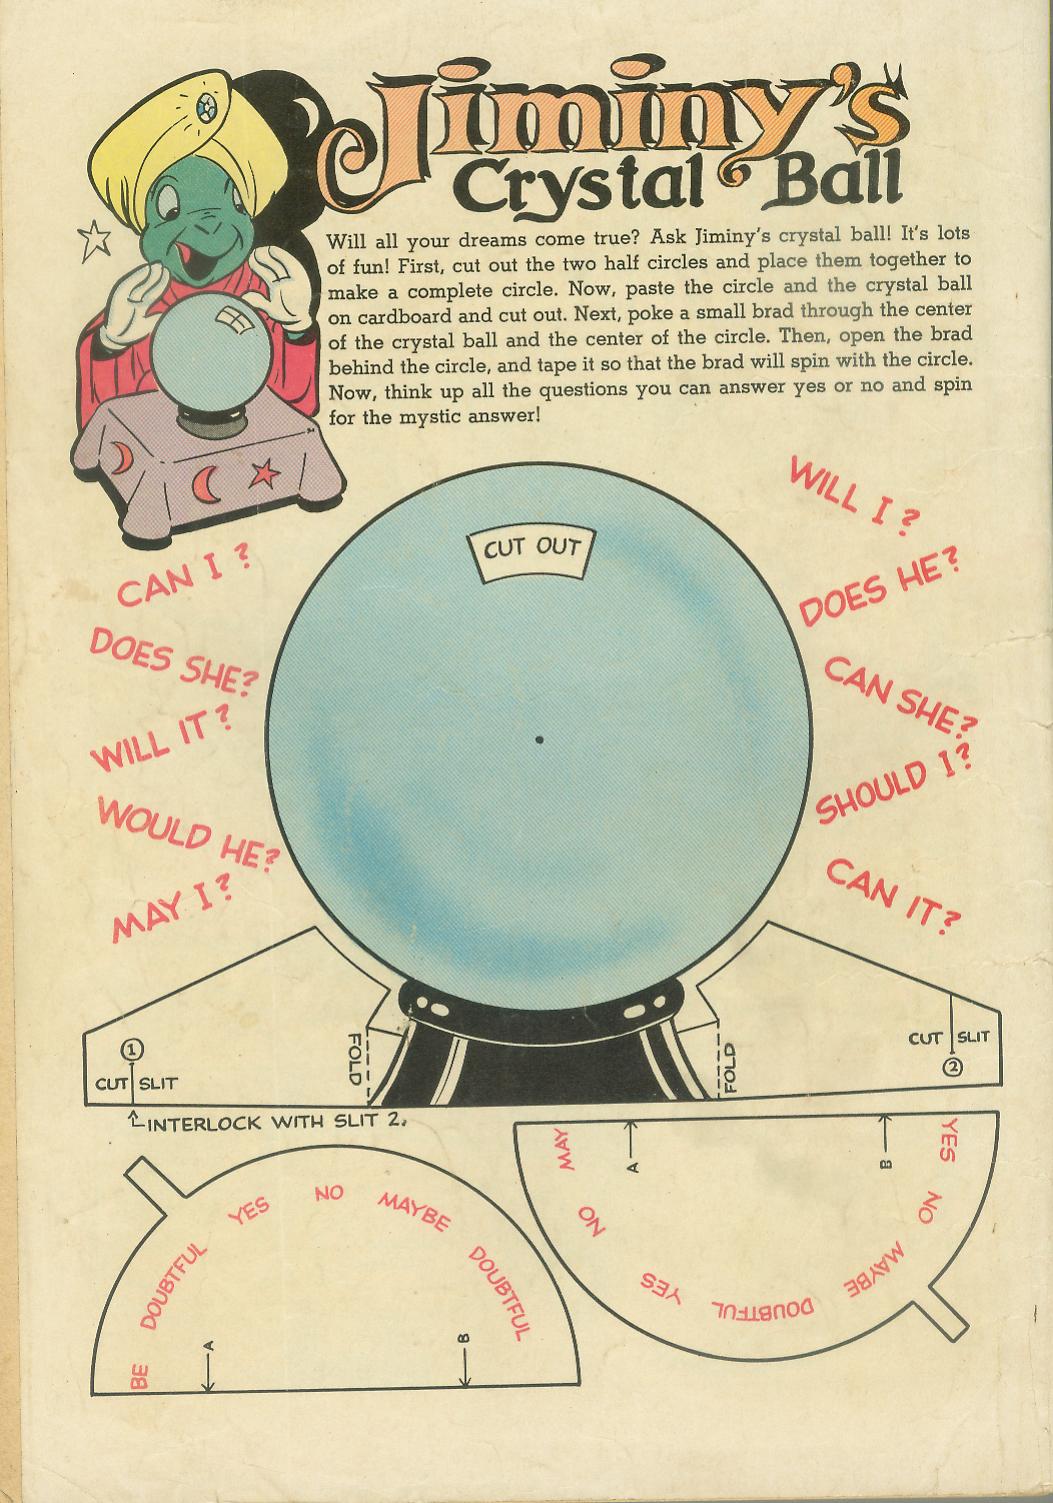 Jiminy's
Crystal Ball
Will all your dreams come true? Ask Jiminy's crystal ball! It's lots
of fun! First, cut out the two half circles and place them together to
make a complete circle. Now, paste the circle and the crystal ball
on cardboard and cut out. Next, poke a small brad through the center
of the crystal ball and the center of the circle. Then, open the brad
behind the circle, and tape it so that the brad will spin with the circle.
Now, think up all the questions you can answer yes or no and spin
for the mystic answer!
CUT OUT
CAN I?
DOES SHE?
WILL IT?
WOULD HE?
MAY I?
WILL I?
DOES HE?
CAN SHE?
SHOULD I?
CAN IT?
1
CUT SLIT
FOLD
FOLD
CUT SLIT
2
INTERLOCK WITH SLIT 2.
BE
DOUBTFUL
YES
NO
MAYBE
DOUBTFUL
A
B
MAY
NO
YES
DOUBTFUL
MAYBE
NO
YES
A
B